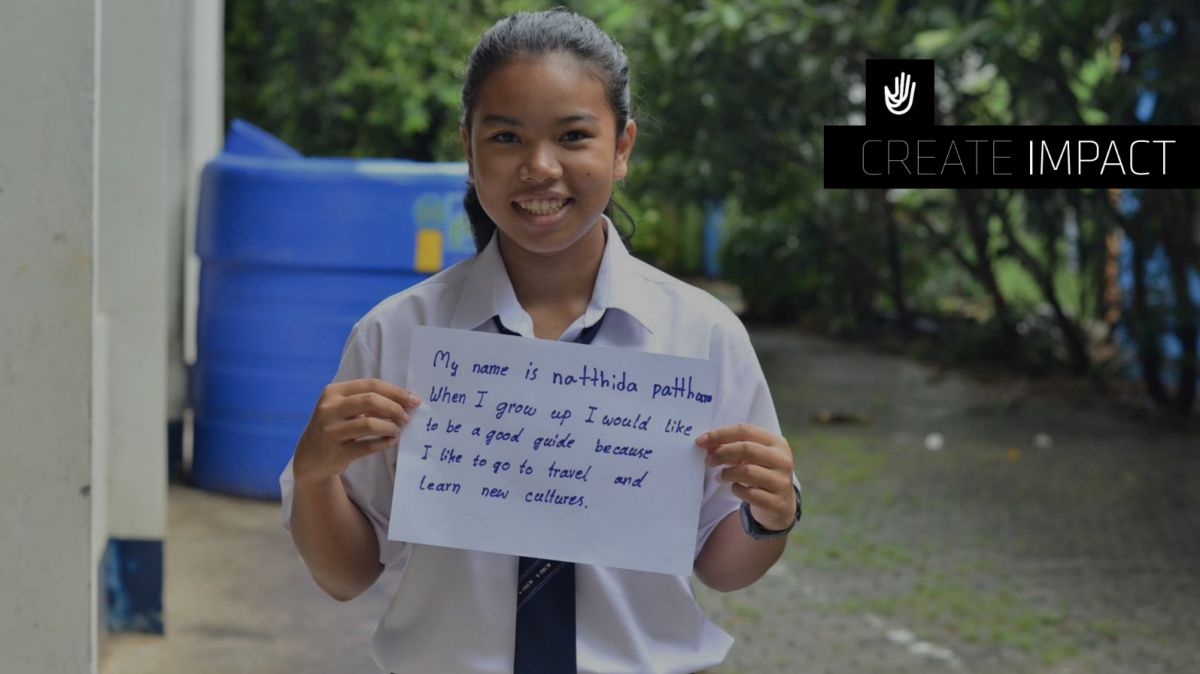 CREATE IMPACT
My name is natthida
When I grow up I would like
to be a good guide because
I like to go to travel and
Learn new cultures.